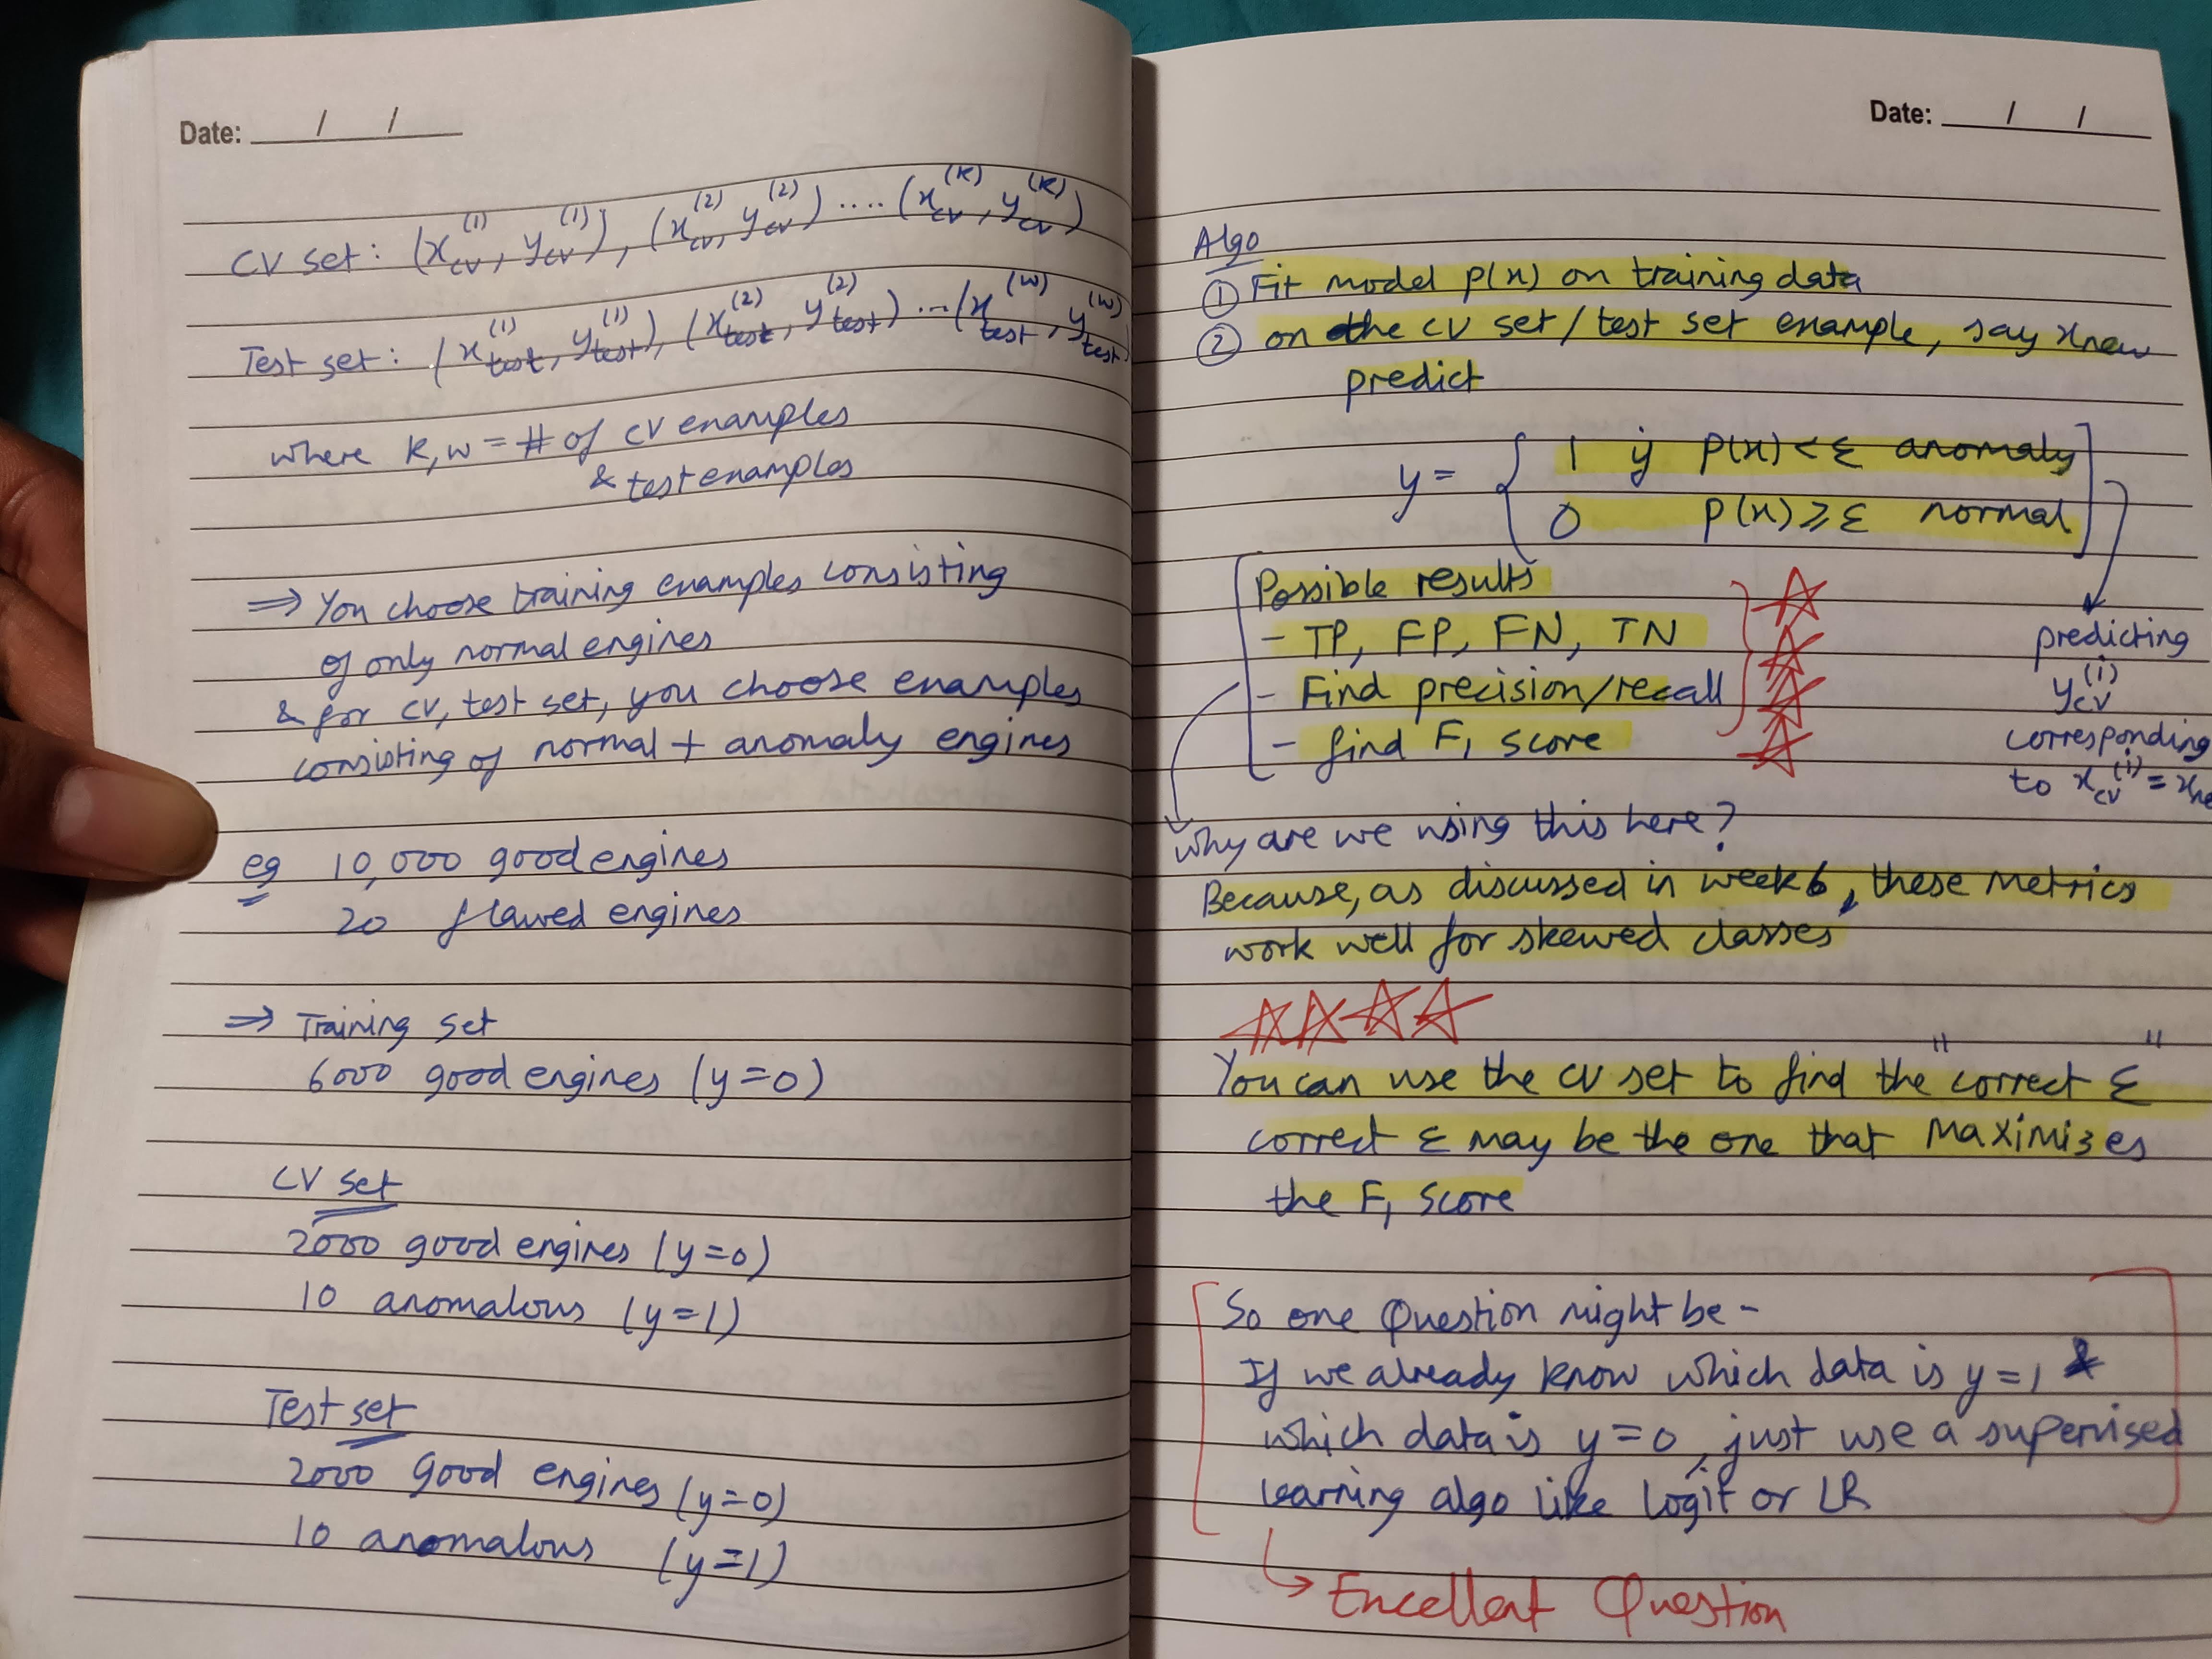 Date: / /
CV set: (x_cv^(1), y_cv^(1)), (x_cv^(2), y_cv^(2)) .... (x_cv^(k), y_cv^(k))
Test set: (x_test^(1), y_test^(1)), (x_test^(2), y_test^(2)) ... (x_test^(w), y_test^(w))
where k, w = # of cv examples
& test examples
⇒ You choose training examples consisting
of only normal engines
& for cv, test set, you choose examples
consisting of normal + anomaly engines
eg 10,000 good engines
20 flawed engines
⇒ Training set
6000 good engines (y=0)
CV set
2000 good engines (y=0)
10 anomalous (y=1)
Test set
2000 good engines (y=0)
10 anomalous (y=1)
Date: / /
Algo
① Fit model p(x) on training data
② on the cv set/test set example, say xnew
predict
y = { 1 if p(x) < ε anomaly
0 p(x) ≥ ε normal
predicting
y_cv^(i)
corresponding
to x_cv^(i) =
Possible results
- TP, FP, FN, TN
- Find precision/recall
- find F₁ score
Why are we using this here?
Because, as discussed in week 6, these metrics
work well for skewed classes
You can use the cv set to find the "correct ε"
correct ε may be the one that maximizes
the F₁ score
So one Question might be -
If we already know which data is y=1 &
which data is y=0, just use a supervised
learning algo like logit or LR
Excellent Question